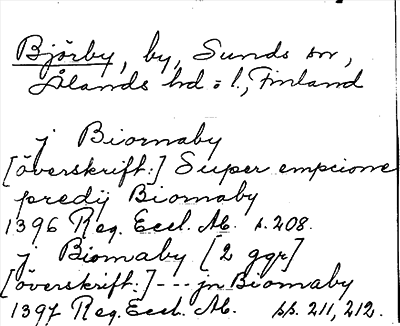 Björby, by, Sunds sn,
Ålands hd o l., Finland
j Biornaby
[överskrift:] Super empcione
predij Biornaby
1396 Reg. Eccl. Ab. s. 208.
j Biornaby [2 ggr]
[överskrift:] --- jn Biornaby
1397 Reg. Eccl. Ab. ss. 211, 212.